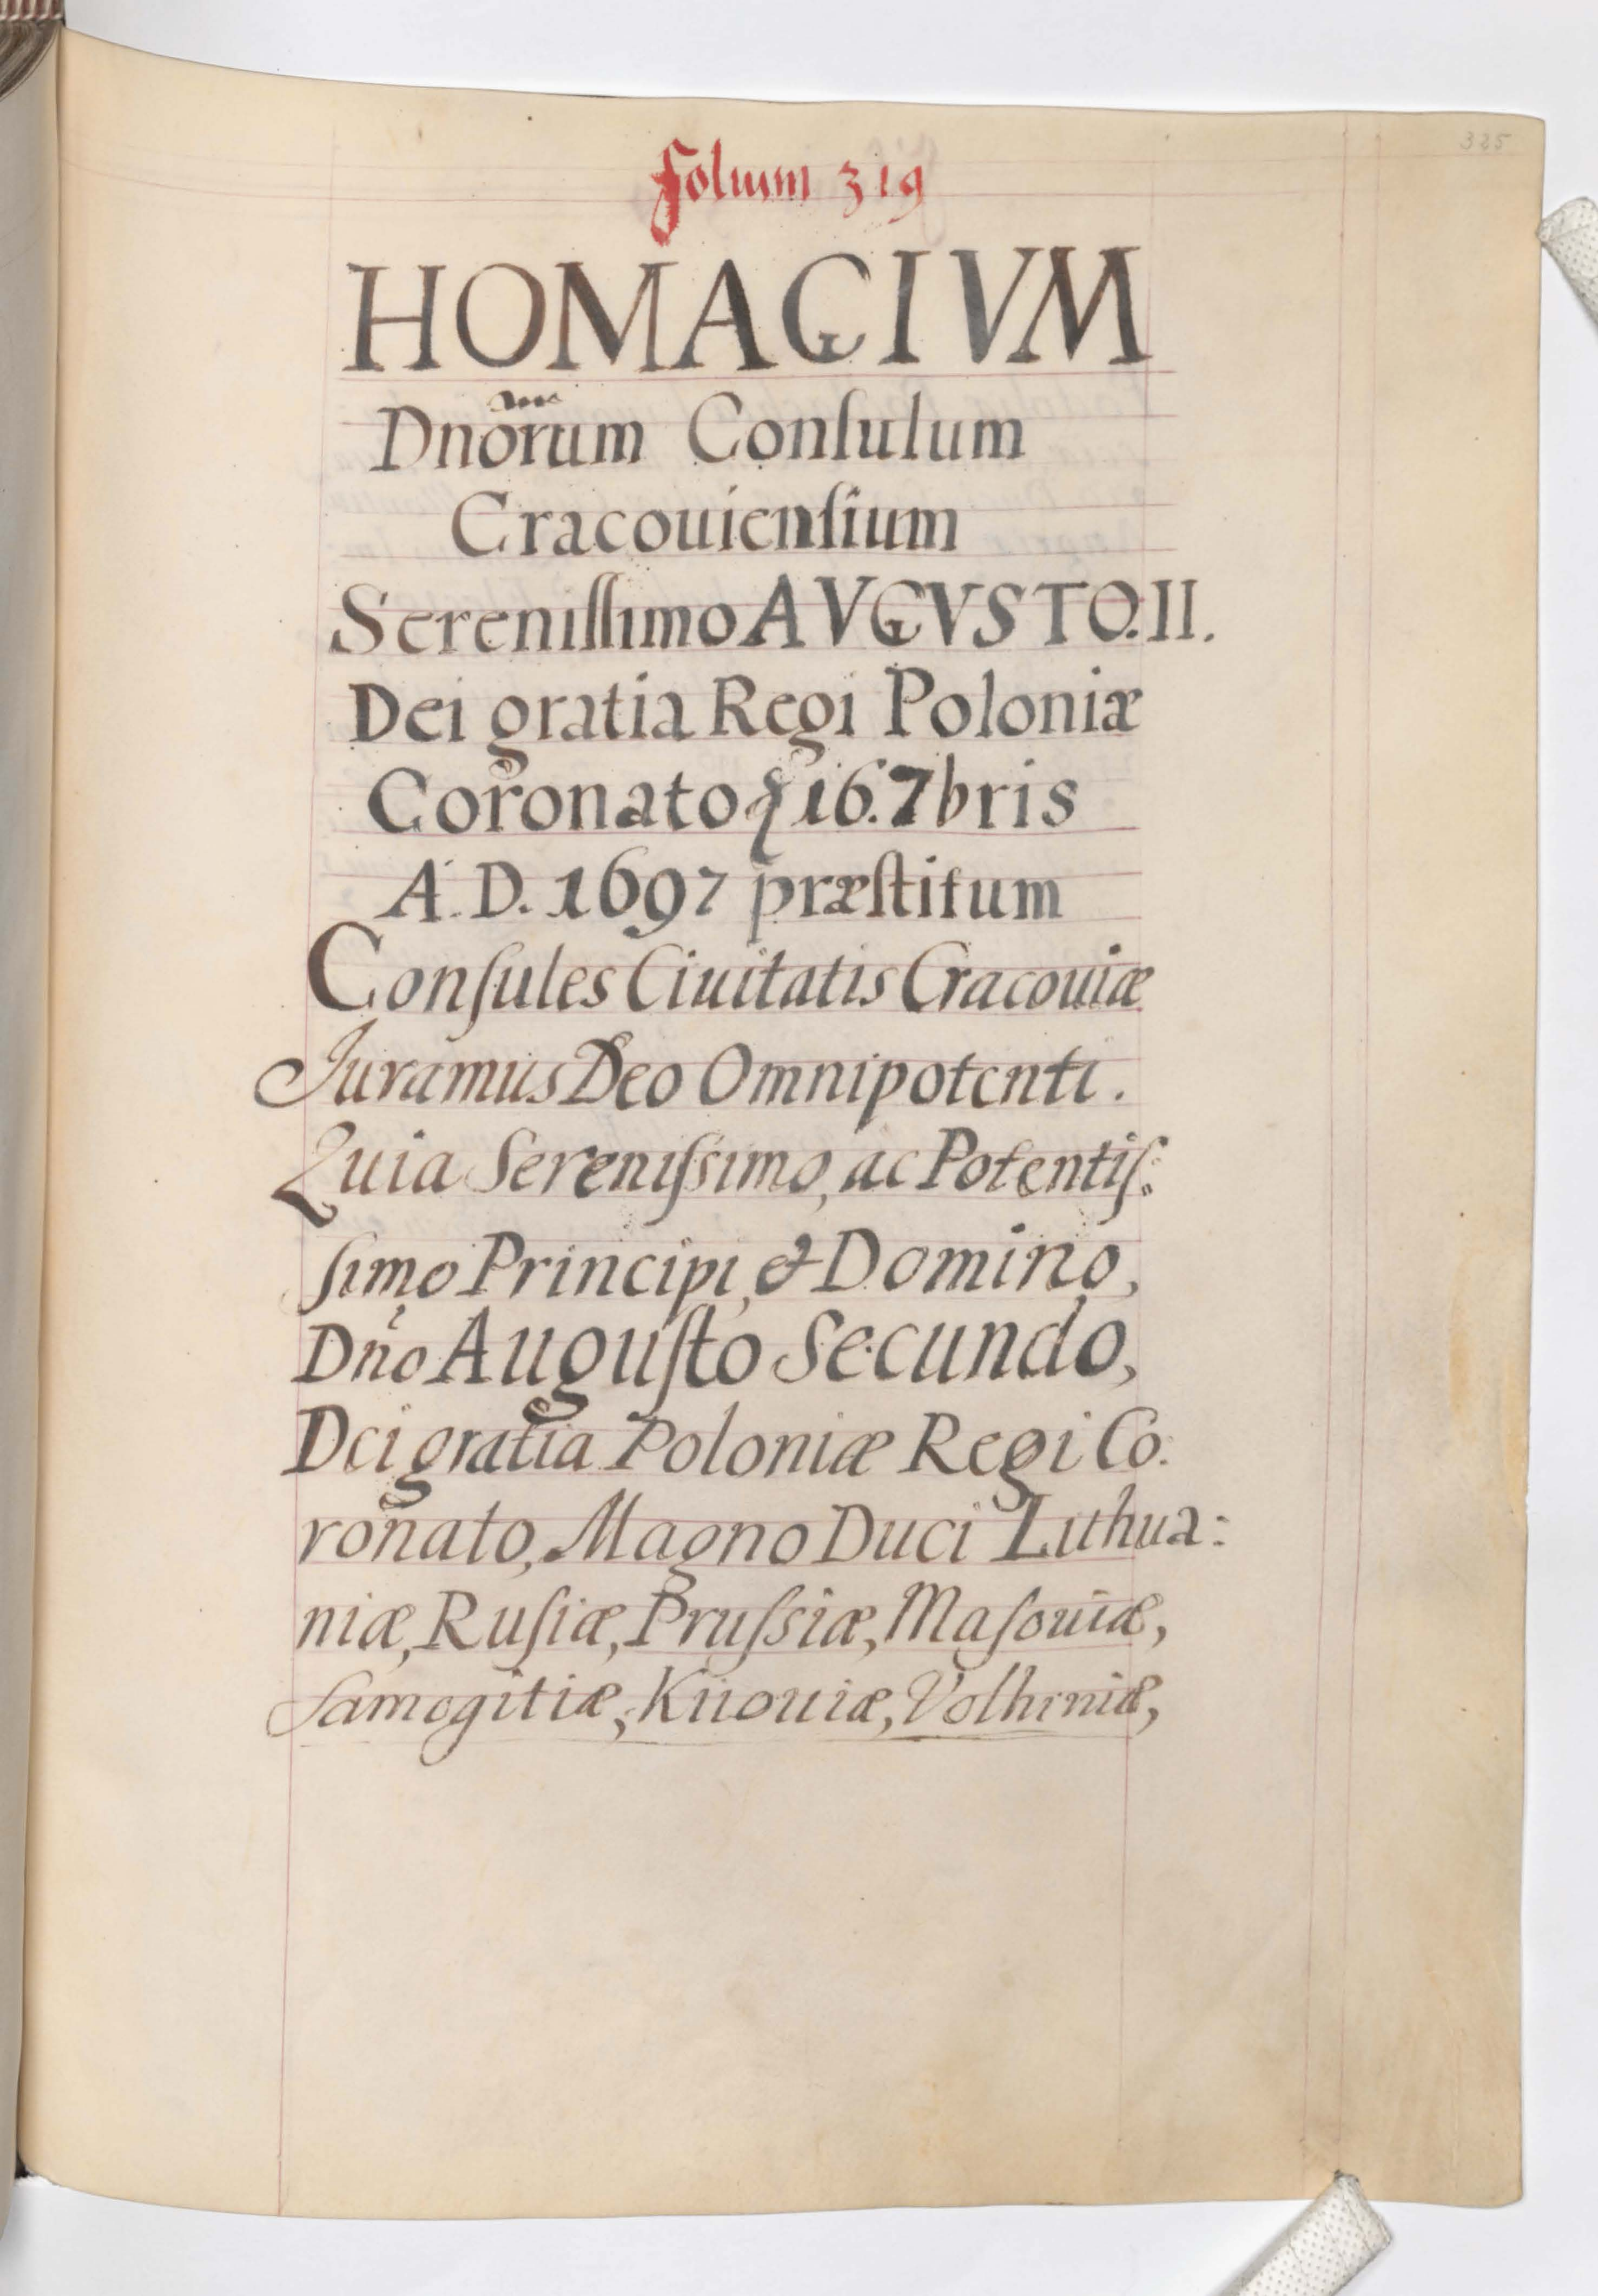 325
folium 319
HOMAGIVM
Dnorum Conſulum
Cracouienſium
Sereniſſimo AVGVSTO. II.
Dei gratia Regi Poloniæ
Coronato 16. 7bris
A. D. 1697 præſtitum
Conſules Ciuitatis Cracouiæ
Juramus Deo Omnipotenti.
Quia Sereniſsimo, ac Potentiſ:
ſimo Principi, & Domino,
Dño Auguſto Secundo,
Dei gratia Poloniæ Regi Co:
ronato, Magno Duci Lithua:
niæ, Ruſiæ, Pruſsiæ, Maſouiæ,
Samogitiæ, Kiiouiæ, Volhiniæ,